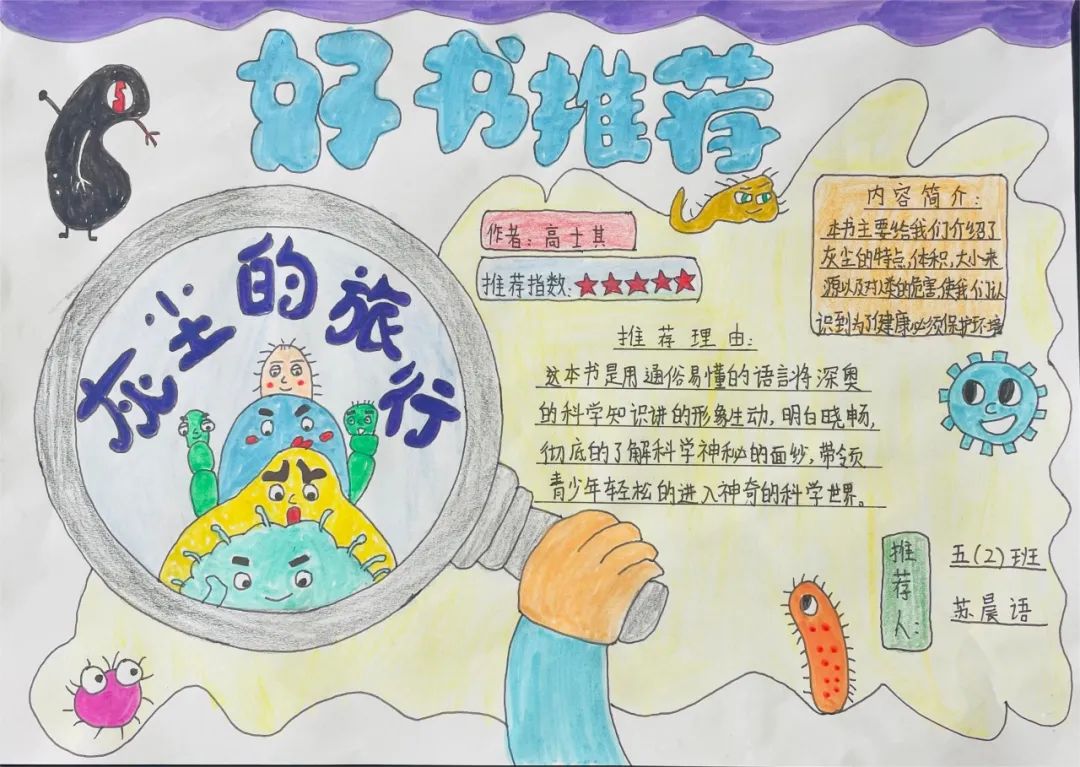 好书推荐
灰尘的旅行
作者：高士其
推荐指数：★★★★★
内容简介：
本书主要给我们介绍了
灰尘的特点、体积、大小来
源以及对人类的危害，使我们认
识到为了健康必须保护环境
推荐理由：
这本书是用通俗易懂的语言将深奥
的科学知识讲的形象生动，明白晓畅，
彻底的了解科学神秘的面纱，带领
青少年轻松的进入神奇的科学世界。
推荐人：
五（2）班
苏晨语